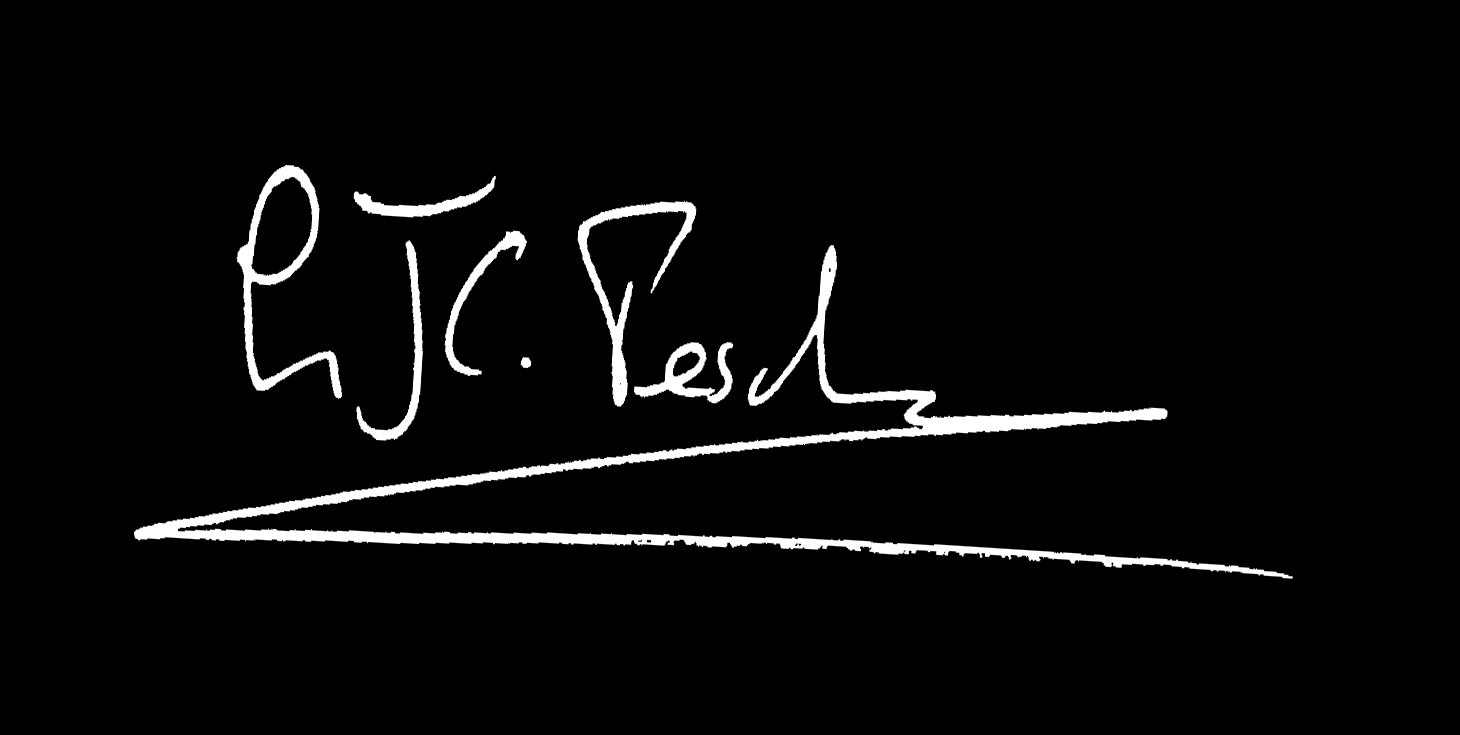 J.C. Pesch